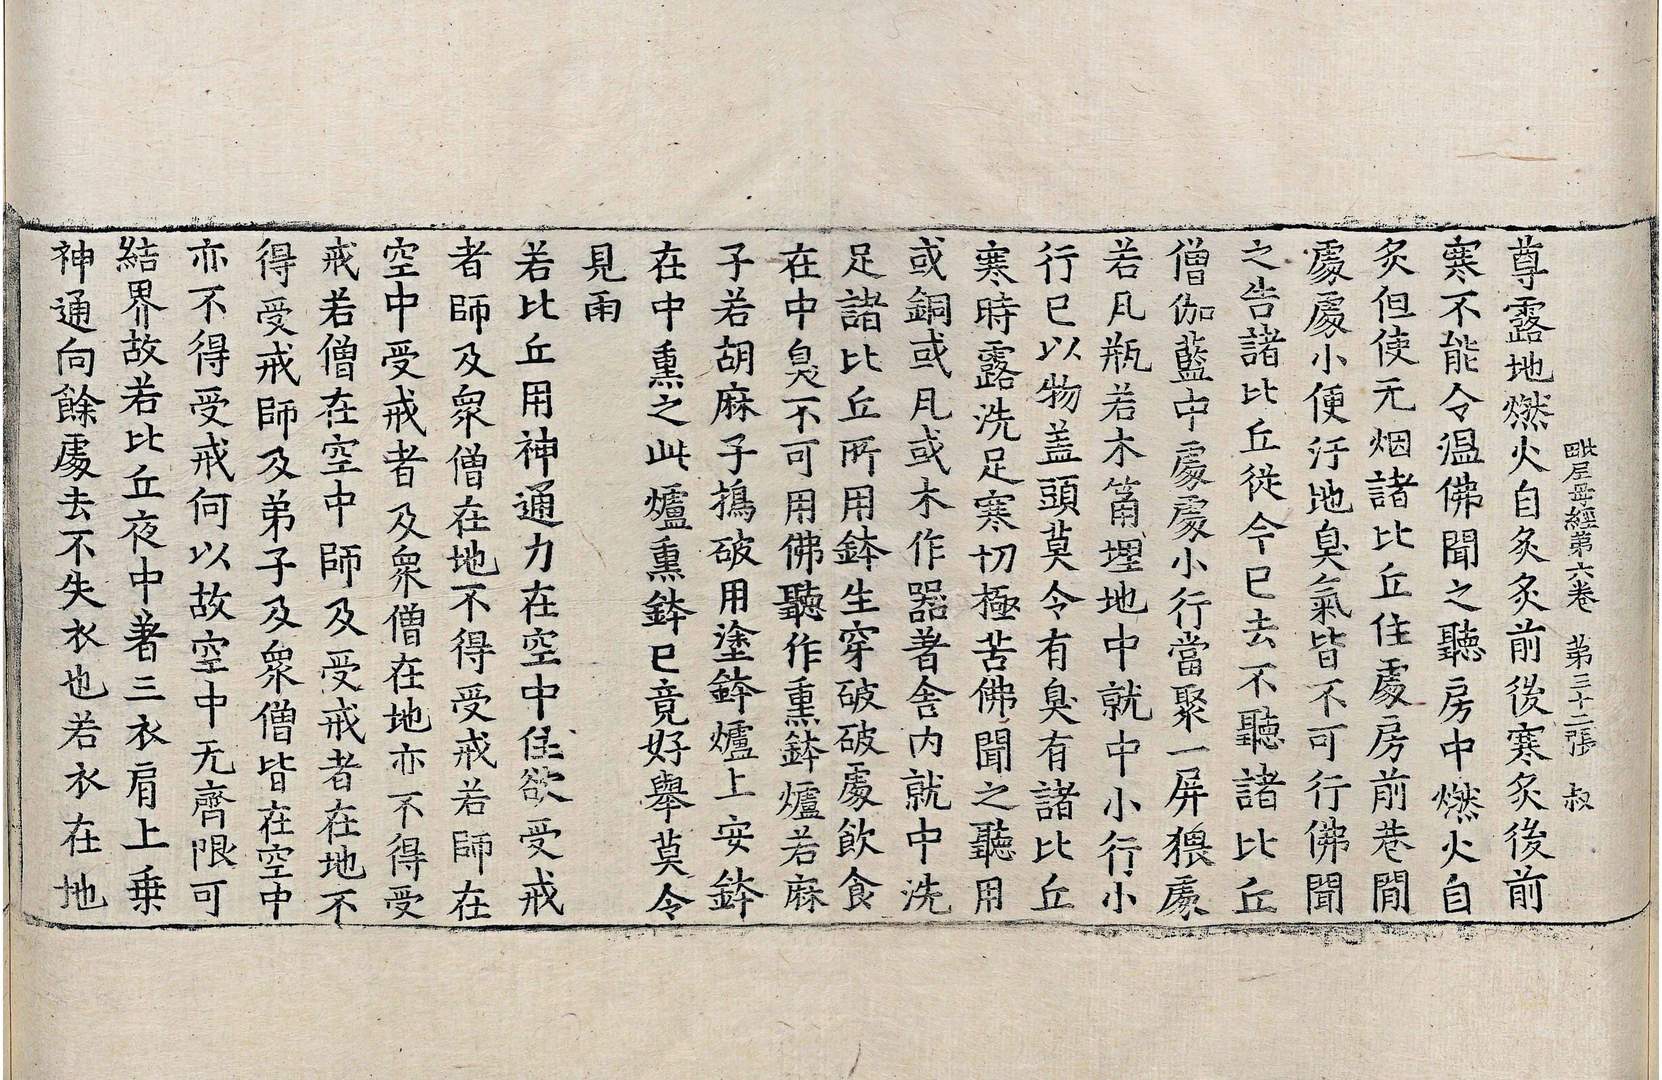 毗尼母經第六卷　第三十二張　叔
尊露地燃火自炙炙前後寒炙後前
寒不能令温佛聞之聽房中燃火自
炙但使无烟諸比丘住處房前巷閒
處處小便汙地臭氣皆不可行佛聞
之告諸比丘從今已去不聽諸比丘
僧伽藍中處處小行當聚一屏猥處
若凡瓶若木筩埋地中就中小行小
行已以物盖頭莫令有臭有諸比丘
寒時露洗足寒切極苦佛聞之聽用
或銅或凡或木作器著舍内就中洗
足諸比丘所用鉢生穿破破處飲食
在中臭不可用佛聽作熏鉢爐若麻
子若胡麻子搗破用塗鉢爐上安鉢
在中熏之此爐熏鉢已竟好舉莫令
見雨
若比丘用神通力在空中住欲受戒
者師及衆僧在地不得受戒若師在
空中受戒者及衆僧在地亦不得受
戒若僧在空中師及受戒者在地不
得受戒師及弟子及衆僧皆在空中
亦不得受戒何以故空中无齊限可
結界故若比丘夜中著三衣肩上乗
神通向餘處去不失衣也若衣在地